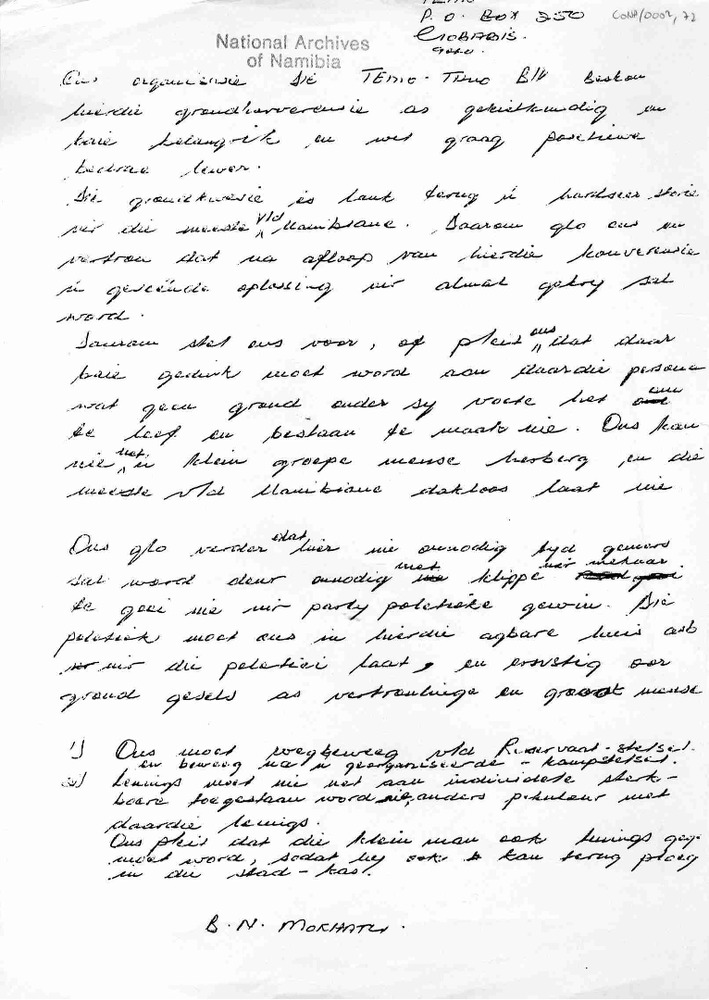 TEMO
P.O. BOX 250 CONA/0002, 72
GOBABIS.
9000.
National Archives
of Namibia
Ons organisasie Die TEMO-THUO B/V Beskou
hierdie grondkonverensie as geskiedkundig en
baie belangrik en wil graag positiewe
bedrae lewer.
Die grondkwessie is lank terug 'n hartseer storie
vir die meeste v/d Namibiane. Daarom glo ons en
vertrou dat na afloop van hierdie konverensie
'n gesonde oplossing vir almal gekry sal
word.
Daarom stel ons voor, of pleit ons dat daar
baie gedink moet word aan daardie persone
wat geen grond onder sy voete het om
te leef en bestaan te maak nie. Ons kan
nie net 'n klein groepe mense herberg en die
meeste v/d Namibiane dakloos laat nie
Ons glo verder dat hier nie onnodig tyd gemors
sal word deur onnodig met klippe vir mekaar
te gooi nie vir party politieke gewin. Die
politiek moet ons in hierdie agbare huis asb
vir die politici laat, en ernstig oor
grond gesels as vertroulinge en groot mense
1) Ons moet wegbeweeg v/d Reservaat-stelsel.
en beweeg na 'n georganiseerde - kampstelsel.
2) Lenings moet nie net aan individele sterk-
boere toegestaan word nie, anders
daardie lenings.
Ons pleit dat die klein man ook lenings
moet word, sodat hy ook kan terug ploeg
in die stad-kas.
B.N. MOKHATU.